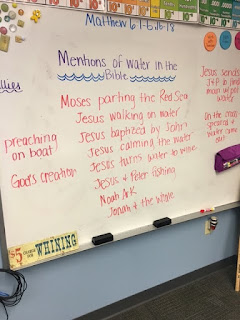 Matthew 6:1-6, 16-18
Mentions of water in the
Bible
Moses parting the Red Sea
Jesus walking on water
Jesus baptized by John
Jesus calming the water
Jesus turns water to wine
Jesus & Peter fishing
Noah Ark
Jonah & the Whale
preaching
on boat
God's creation
Jesus sends
J & P to find
man w/ pot
water
On the cross
pierced &
water came
out
$5
WHINING